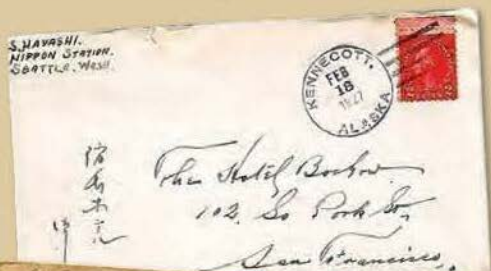 S. HAYASHI.
NIPPON STATION.
SEATTLE. WASH.
KENNECOTT,
FEB
18
1927
ALASKA
The Hotel
102. So Park St.
San Francisco,